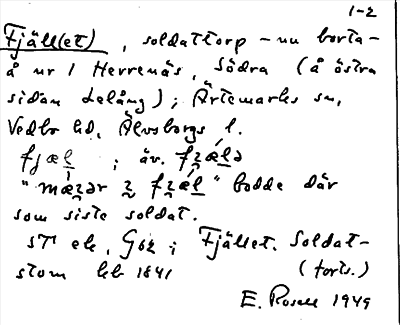 1-2
Fjäll(et), soldattorp - nu borta -
å nr 1 Herrenäs, Södra (å östra
sidan Lelång); Ärtemarks sn,
Vedbo hd, Älvsborgs l.
fjæl ; äv. fzælə
"mæzər z fzæl" bodde där
som siste soldat.
ST ek. Göz ; Fjället. Soldat-
stom hb 1841 (forts.)
E. Rosell 1949